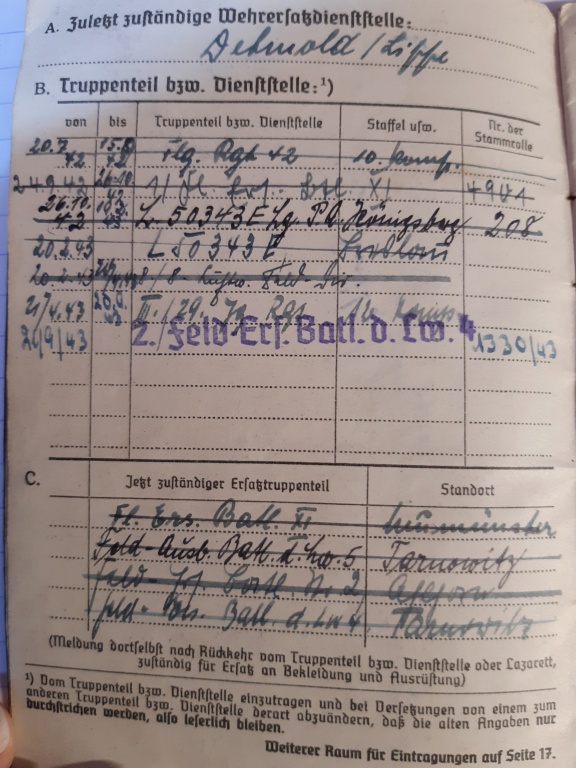 A. Zuletzt zuständige Wehrersatzdienststelle:
Detmold / Lippe
B. Truppenteil bzw. Dienststelle:¹)
von bis Truppenteil bzw. Dienststelle Staffel usw. Nr. der Stammrolle
20.7. 42 15.8. 42 Flg. Rgt 42 10. Komp.
24.9.42 26.10. Fl. Ers. Batl. XI 4901
26.10. 42 L 50343 E Lg. P.A. Königsbrg 208
20.2.43 L 50343 E
20.2.43 8/8- Luftw. Feld-Div.
21/4.43 20.9. 43 III./29. Jg. Rgt.
21/9/43 2. Feld Ers. Batl. d. Lw. 4 1330/43
C. Jetzt zuständiger Ersatztruppenteil Standort
Fl. Ers. Batl. XI Neumünster
Feld-Ausb. Batl. d. Lw. 5 Tarnowitz
Feld- Batl. Nr. 2
Feld- Batl. d. Lw 4 Tarnowitz
(Meldung dortselbst nach Rückkehr vom Truppenteil bzw. Dienststelle oder Lazarett,
zuständig für Ersatz an Bekleidung und Ausrüstung)
¹) Vom Truppenteil bzw. Dienststelle einzutragen und bei Versetzungen von einem zum
anderen Truppenteil bzw. Dienststelle derart abzuändern, daß die alten Angaben nur
durchstrichen werden, also leserlich bleiben.
Weiterer Raum für Eintragungen auf Seite 17.